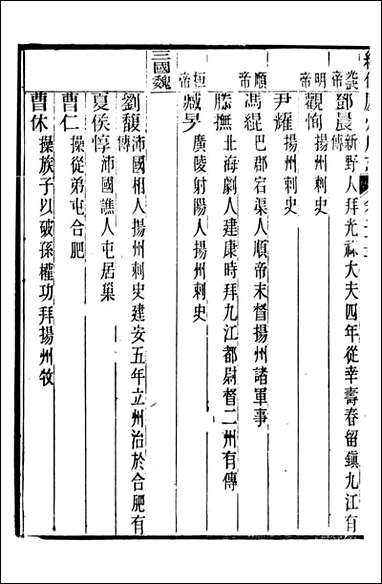 鄧晨新野人拜光祿大夫四年從幸壽春留鎮九江有傳
明帝
觀恂揚州刺史
尹耀揚州刺史
順帝
馮緄巴郡宕渠人順帝末督揚州諸軍事
滕撫北海劇人建康時拜九江都尉督二州有傳
桓帝
臧旻廣陵射陽人揚州刺史
三國魏
劉馥沛國相人揚州刺史建安五年立州治於合肥有傳
夏侯惇沛國譙人屯居巢
曹仁操從弟屯合肥
曹休操族子以破孫權功拜揚州牧